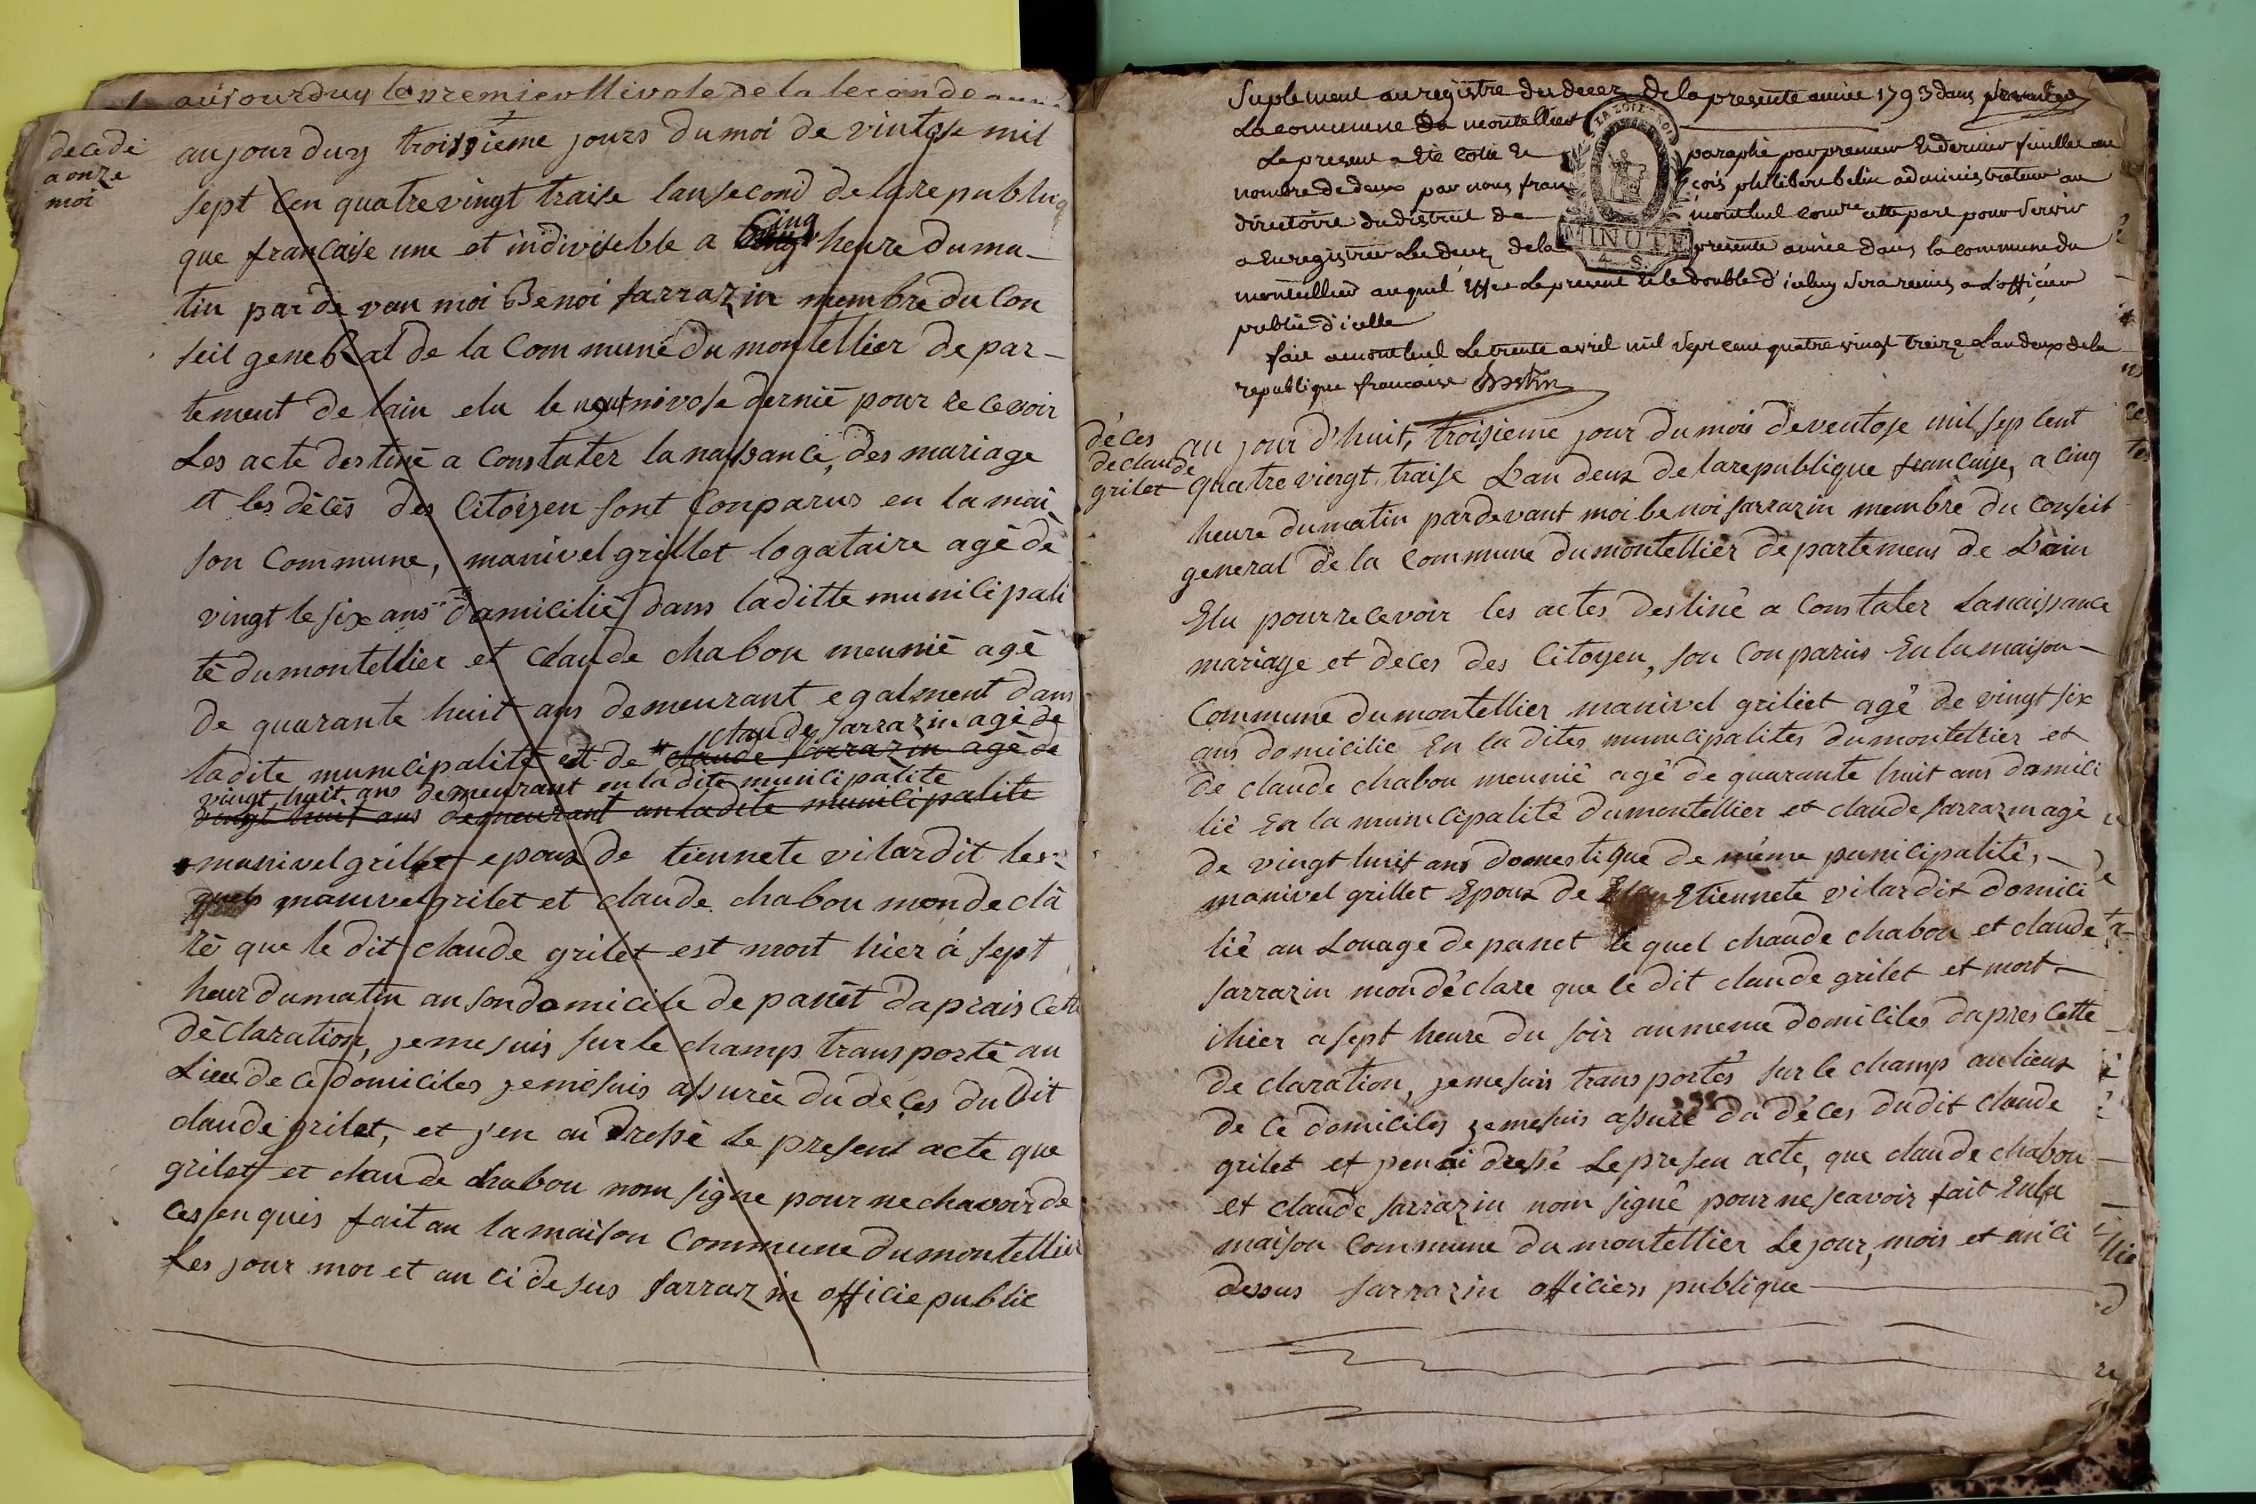 aujourduy le premier Nivose de la seconde
decede
a onze
moi
aujourduy troisieme jours du moi de vintose mil
sept cen quatre vingt traise lan second de la republi
que francaise une et indivisible a Cinq heure du ma-
tin par de van moi Benoi sarrazin membre du Con
seil general de la Commune du montellier depar-
tement de lain elu le neuf nivose dernie pour recevoir
Les acte destiné a Constater la naissance, des mariage
et les décès des Citoÿen sont Conparus en la mai
son Commune, manivel grillet logataire agè dè
vingt le six ans domicilié dans laditte municipali
té du montellier et Claude chabou meunié agé
de quarante huit ans demeurant egalment dans
ladite municipalité et de claude sarrazin agè de
claude sarrazin agè de
vingt huit ans demeurant en la dite municipalite
vingt huit ans demeurant an ladite municipalite
manivel grillet epoux de tiennete vilardit les-
quels manivel grilet et claude chabou mon declâ
ré que le dit claude grilet est mort hier á sept
heur du matin an son domicile de panêt daprais cette
dèclaration, je me suis sur le champ transportè au
Lieu de ce domiciles je me suis assurée du deces du Dit
claude grilet, et j'en ai dressé le present acte que
grilet et claude chabou nom signe pour ne chavoir de
ces enquis fait an la maison Commune du montellier
Les jour moi et an ci desus sarrazin officie public
Suplement au registre des deces de la presente année 1793 dans
La commune du montellier
Le present a été cotté et paraphé par premier et dernier feuillet au
nombre de deux par nous francois philibert belin administrateur au
directoire du district de montluel cette part pour servir
a Enregistrer Les deces de la presente année dans la commune du
montellier auquel Effet Le present et le double d'iceluy sera remis a L'officier
public d'icelle
fait a montluel Le trente avril mil sept cent quatre vingt treize L'an deux de la
republique francaise Belin
LA LOI ET LE ROI
MINUTE
4. S.
déces
de claude
grilet
au jour d'huit, troisieme jour du mois de ventose mil sep cent
quatre viengt, traise L'an deux de la republique francaise, a cinq
heure du matin pardevant moi benoi sarrazin membre du Conseil
general de la Commune du montellier departemens de L'ain
Elu pour recevoir les actes destiné a Constater La naissance
mariage et deces des Citoyen, son Conparus En la maison-
Commune du montellier manivel griliet agé de vingt six
ans domicilie En la dites municipalites du montellier et
de claude chabou meunié agé de quarante huit ans domici
lié En la municipalité du montellier et claude sarrazin agé
de vingt huit ans domestique de même punicipalité,-
manivel grillet Epoux de Etiennete vilardit domici
lié au Louage de panet le quel chaude chabou et claude
sarrazin mon déclare que le dit claude grilet et mort-
ihier a sept heure du soir au meme domiciles dapres cette
de claration, je me suis transportés sur le champ au lieux
de ce domiciles je me suis assuré du déces dudit claude
grilet et j'en ai dressé Le presen acte, que claude chabou-
et claude sarrazin nom signé pour ne scavoir fait En la
maison Commune du montellier Le jour, mois et an ci
dessus sarrazin officiers publique